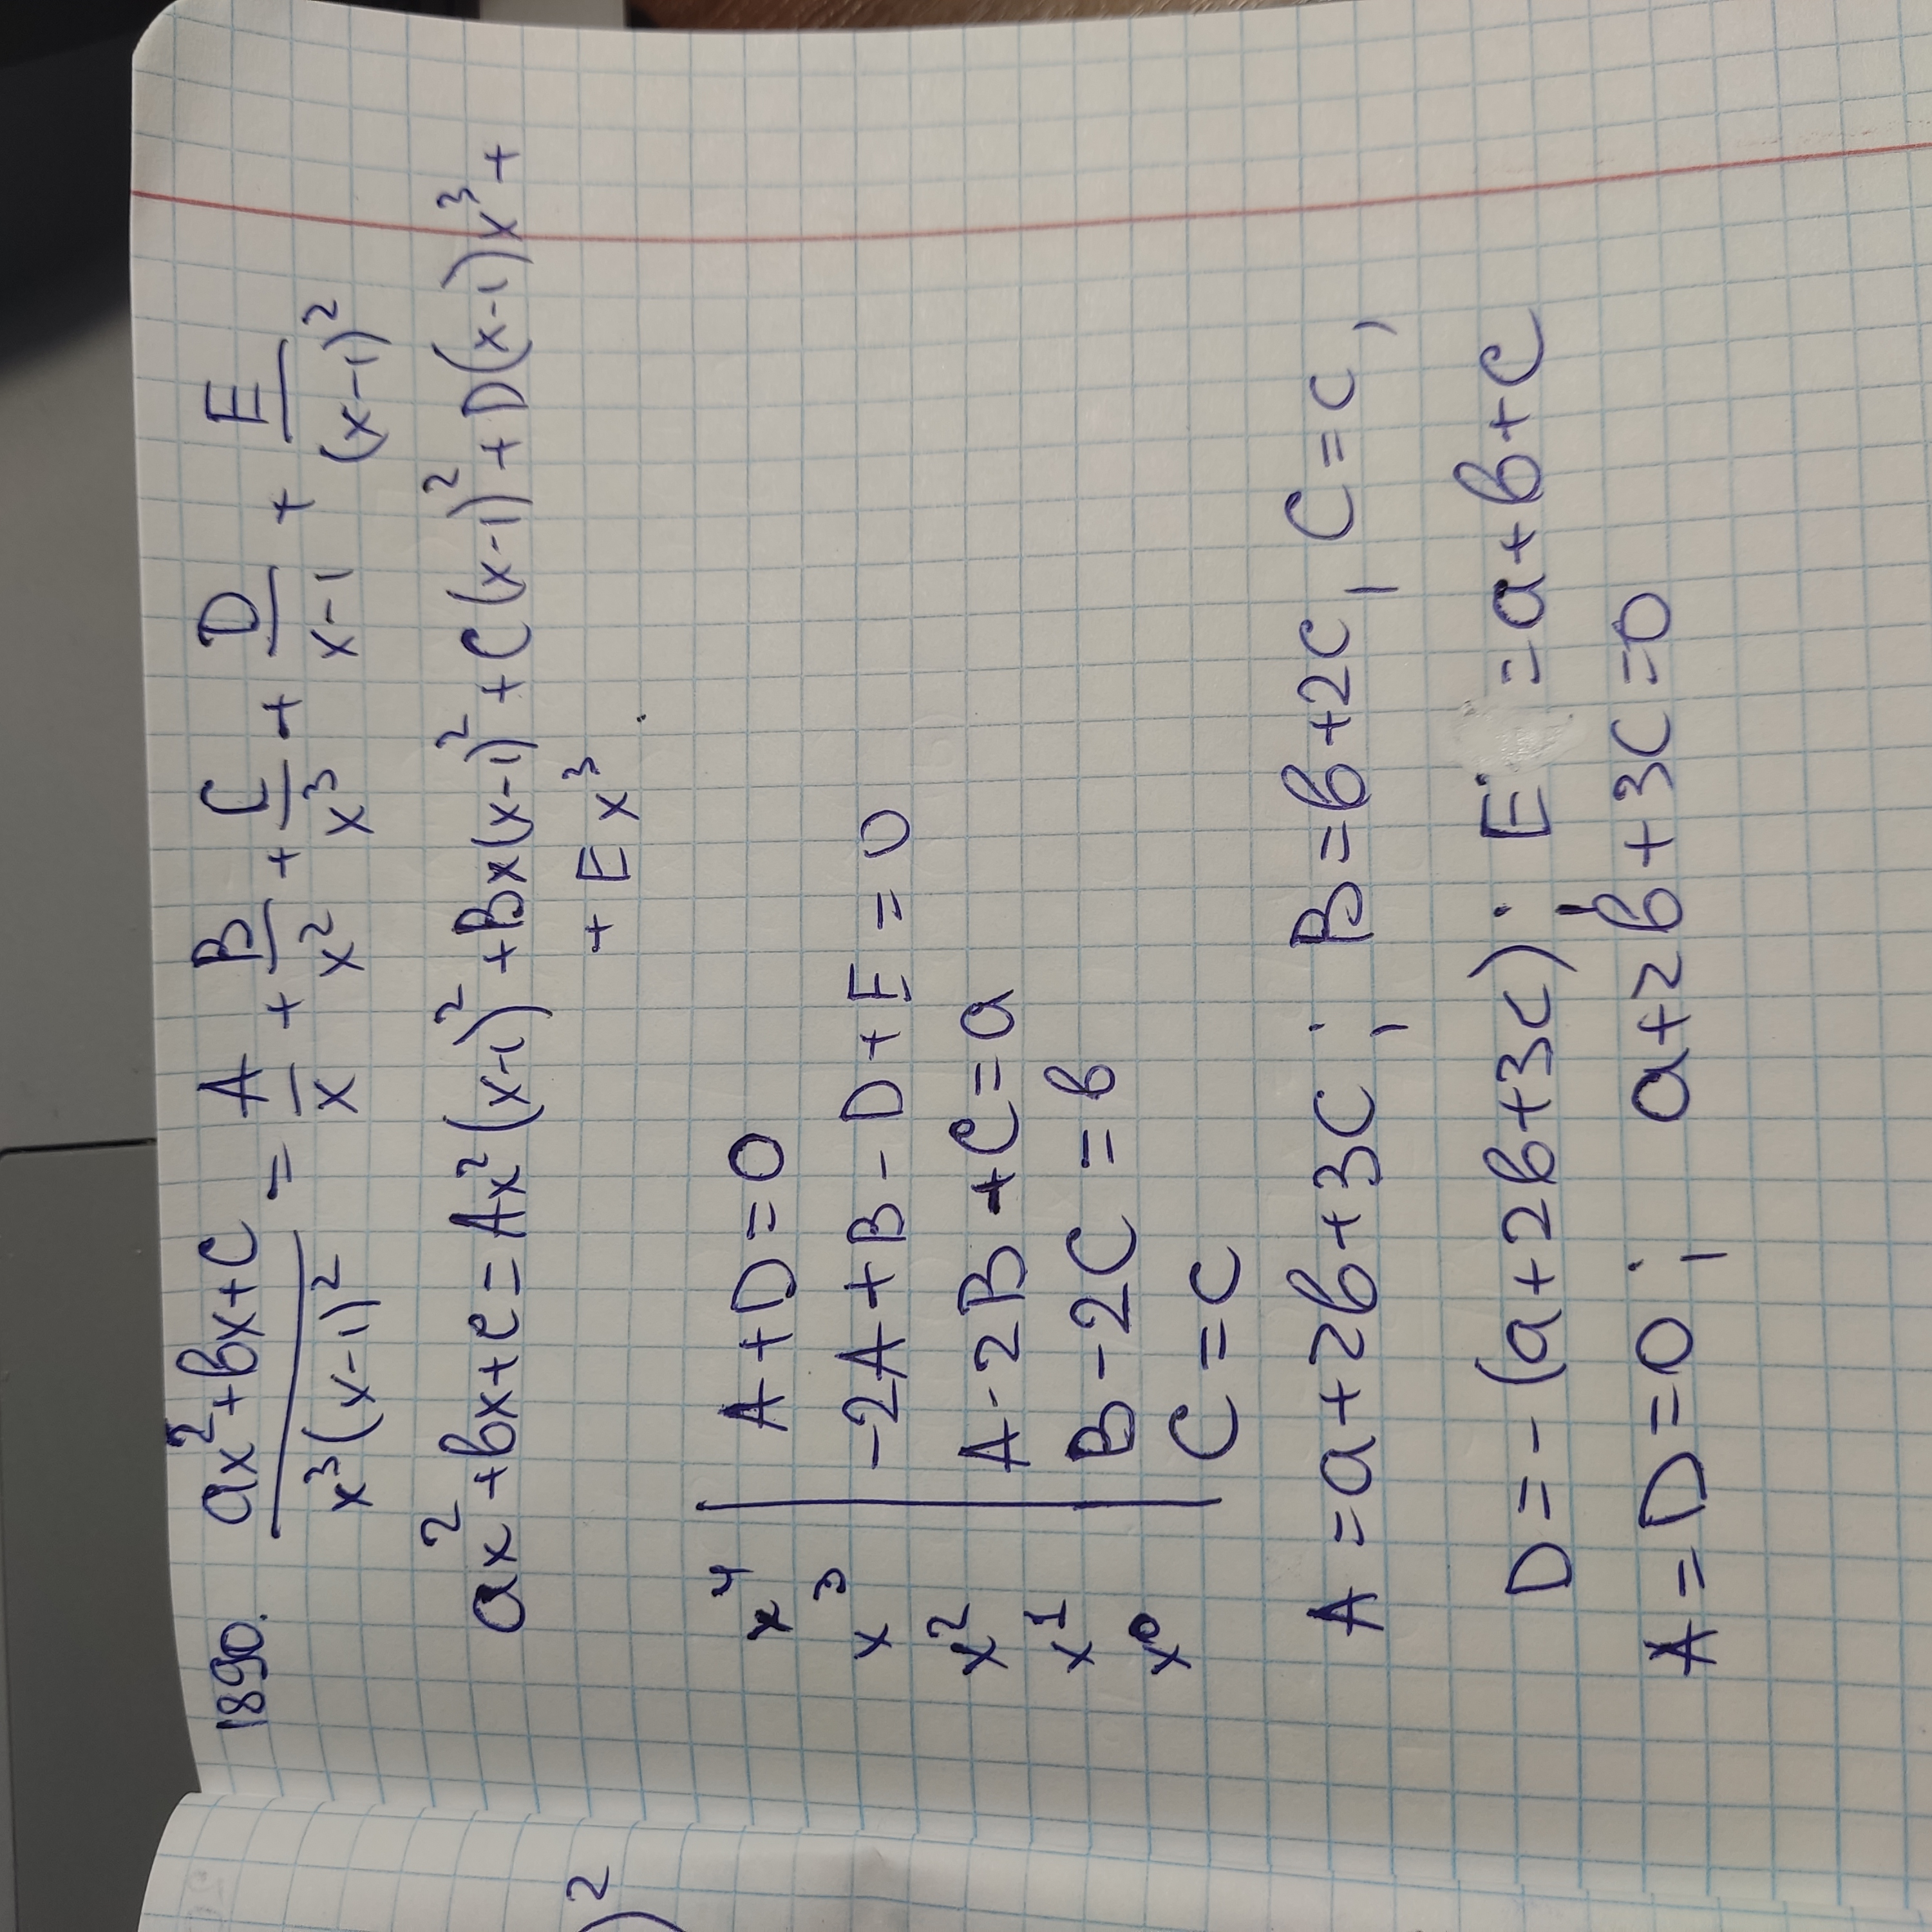 1890. (ax²+вx+c)/(x³(x-1)²) = A/x + B/x² + C/x³ + D/(x-1) + E/(x-1)²
ax²+вx+c=Ax²(x-1)²+Bx(x-1)²+C(x-1)²+D(x-1)x³+
+Ex³.
)²
x⁴ | A+D=0
x³ | -2A+B-D+E=0
x² | A-2B+C=a
x¹ | B-2C=в
x⁰ | C=c
A=a+2в+3c; B=в+2c, C=c,
D=-(a+2в+3c); E=a+в+c
A=D=0; a+2в+3c=0